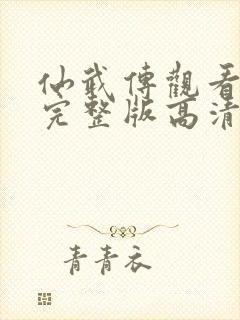 仙武傳觀看
完整版高清
青青衣